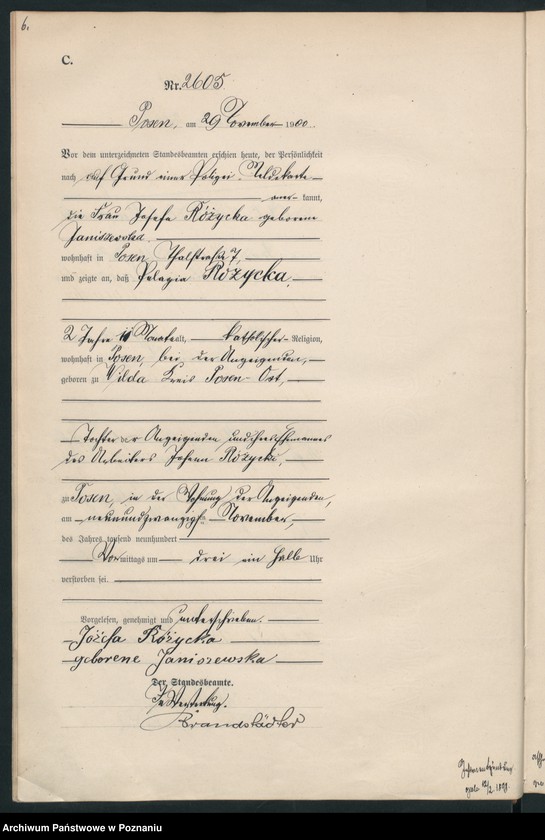 6.
C.
Nr. 2605
Posen, am 29 November 1900.
Vor dem unterzeichneten Standesbeamten erschien heute, der Persönlichkeit
nach auf Grund einer Polizei Meldekarte
aner- kannt,
die Frau Josefa Różycka geborene
Janiszewska
wohnhaft in Posen, Thalstraße 7,
und zeigte an, daß Pelagia Różycka,
2 Jahre 11 Monate alt, katholischer Religion,
wohnhaft in Posen, bei der Anzeigenden,
geboren zu Wilda Kreis Posen-Ost,
Tochter der Anzeigenden und ihres Ehemannes
des Arbeiters Johann Różycki,
zu Posen, in der Wohnung der Anzeigenden,
am neunundzwanzigsten November,
des Jahres tausend neunhundert
Vormittags um drei ein halb Uhr
verstorben sei.
Vorgelesen, genehmigt und unterschrieben.
Józefa Różycka
geborene Janiszewska
Der Standesbeamte.
In Vertretung.
Brandstädter
Archiwum Państwowe w Poznaniu